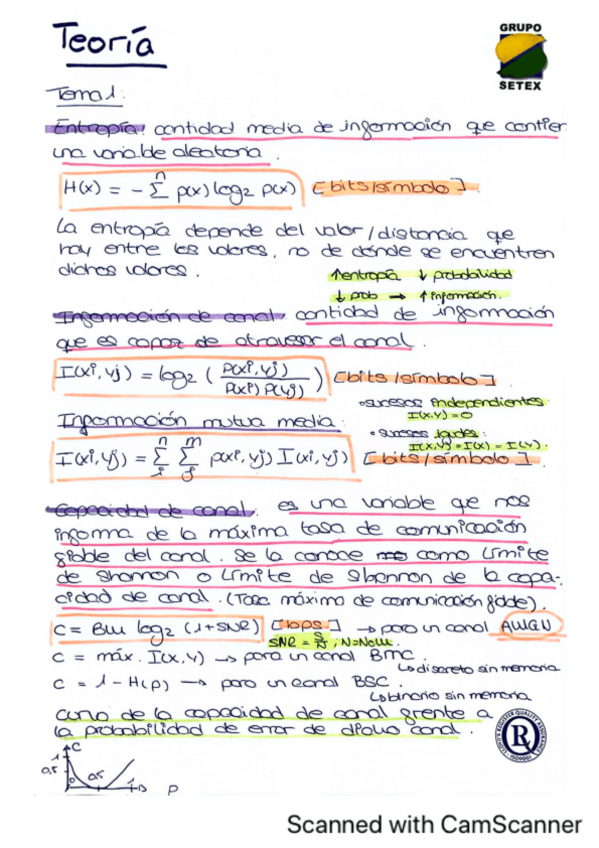 Teoría
GRUPO
SETEX
Tema 1:
Entropía: cantidad media de información que contien
una variable aleatoria.
H(x) = - Σ p(x) log2 p(x) [bits/símbolo].
n
La entropía depende del valor/distancia que
hay entre los valores, no de donde se encuentren
dichos valores.
↑entropía ↓ probabilidad
↓ prob → ↑ información.
Información de canal: cantidad de información
que es capaz de atravesar el canal.
I(xi, yj) = log2 ( p(xi, yj) / p(xi) p(yj) ) [bits/símbolo].
• sucesos independientes
I(x,y) = 0
Información mutua media:
• sucesos iguales:
I(x,y) = I(x) = I(y).
I(xi, yj) = Σ Σ p(xi, yj) I(xi, yj) [bits/símbolo].
n m
i j
Capacidad de canal: es una variable que nos
informa de la máxima tasa de comunicación
fiable del canal. Se la conoce como límite
de shannon o límite de shannon de la capa-
cidad de canal. (Tasa máxima de comunicación fiable).
C = Bw log2 (1+SNR) [bps] → para un canal AWGN
SNR = S/N ; N=No·w.
C = máx. I(x,y) → para un canal BMC.
↳ discreto sin memoria
C = 1 - H(p) → para un canal BSC.
↳ binario sin memoria
curva de la capacidad de canal frente a
la probabilidad de error de dicho canal.
C
0,5
0,5
1
p
R
Scanned with CamScanner